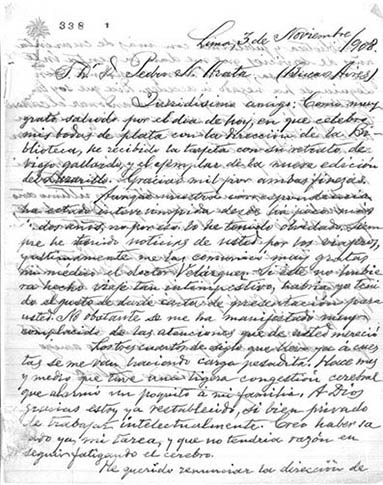 338
Lima, 3 de Noviembre
1908.
S. D. D. Pedro N. Arata (Buenos Aires)
Queridísimo amigo: Como muy
grato saludo por el día de hoy, en que celebro
mis bodas de plata con la Dirección de la Bi-
blioteca, he recibido la tarjeta con su retrato de
viejo gallardo, y el ejemplar de la nueva edición
del Lazarillo. Gracias mil por ambas finezas.
Aunque nuestra correspondencia
ha estado interrumpida desde ha poco más
dos años, no por eso lo he tenido olvidado. Siem-
pre he tenido noticias de usted por los viajeros,
y últimamente me las comunicó muy gratas
mi médico el doctor Velásquez. Si éste no hubie-
ra hecho viaje tan intempestivo, habría yo teni-
do el gusto de darle carta de presentación para
usted. No obstante se me ha manifestado muy
complacido de las atenciones que de usted mereció
Los tres cuartos de siglo que llevo ya a cues-
tas se me van haciendo carga pesadita. Hace mes
y medio que tuve una ligera congestión cerebral
que alarmó un poquito a mi familia. A Dios
gracias estoy ya restablecido, si bien privado
de trabajar intelectualmente. Creo haber lle-
nado ya mi tarea, y que no tendría razón en
seguir fatigando el cerebro.
He querido renunciar la dirección de